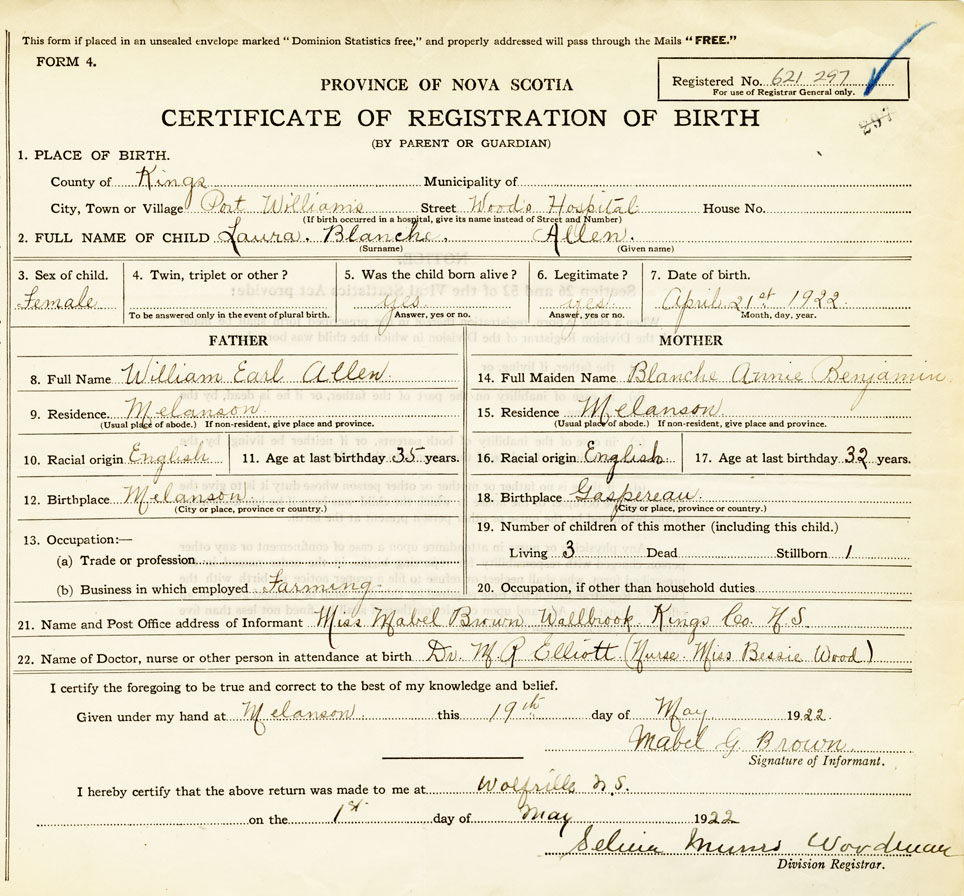 This form if placed in an unsealed envelope marked "Dominion Statistics free," and properly addressed will pass through the Mails "FREE."
FORM 4.
Registered No. 621 297
For use of Registrar General only.
PROVINCE OF NOVA SCOTIA
297
CERTIFICATE OF REGISTRATION OF BIRTH
(BY PARENT OR GUARDIAN)
1. PLACE OF BIRTH.
County of Kings Municipality of
City, Town or Village Port Williams Street Wood's Hospital House No.
(If birth occurred in a hospital, give its name instead of Street and Number)
2. FULL NAME OF CHILD Laura. Blanche. Allen.
(Surname) (Given name)
3. Sex of child. 4. Twin, triplet or other? 5. Was the child born alive? 6. Legitimate? 7. Date of birth.
Female yes yes April 21st 1922
To be answered only in the event of plural birth. Answer, yes or no. Answer, yes or no. Month, day, year.
FATHER MOTHER
8. Full Name William Earl Allen. 14. Full Maiden Name Blanche Annie Benjamin
9. Residence. Melanson. 15. Residence Melanson.
(Usual place of abode.) If non-resident, give place and province. (Usual place of abode.) If non-resident, give place and province.
10. Racial origin English 11. Age at last birthday 35 years. 16. Racial origin English 17. Age at last birthday 32 years.
12. Birthplace Melanson. 18. Birthplace Gaspereau.
(City or place, province or country.) (City or place, province or country.)
13. Occupation:— 19. Number of children of this mother (including this child.)
(a) Trade or profession Living 3 Dead Stillborn 1
(b) Business in which employed Farming. 20. Occupation, if other than household duties
21. Name and Post Office address of Informant Miss Mabel Brown Wallbrook Kings Co. N.S.
22. Name of Doctor, nurse or other person in attendance at birth Dr. M R Elliott (Nurse. Miss Bessie Wood)
I certify the foregoing to be true and correct to the best of my knowledge and belief.
Given under my hand at Melanson this 19th day of May 1922.
Mabel G. Brown
Signature of Informant.
I hereby certify that the above return was made to me at Wolfville N.S.
on the 1st day of May 1922
Woodman
Division Registrar.